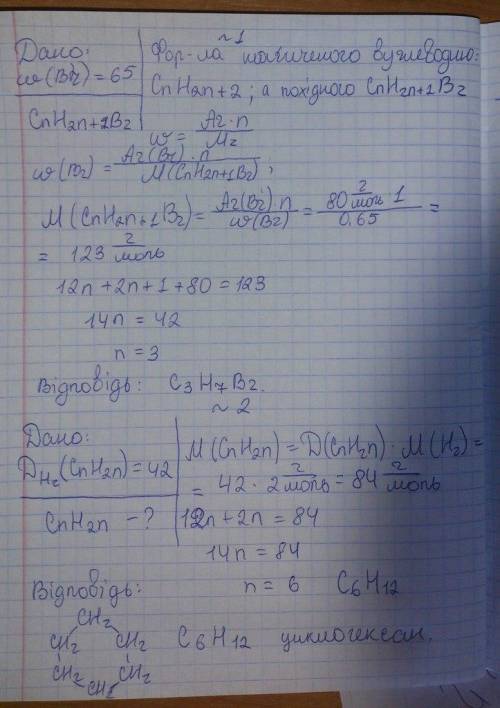 ~ 1
Дано:
w(Br) = 65
CnH2n+1Br
Фор-ла насиченого вуглеводню:
CnH2n+2 ; а похідного CnH2n+1Br
w = Ar·n / Mr
w(Br) = Ar(Br)·n / M(CnH2n+1Br) ;
M(CnH2n+1Br) = Ar(Br)·n / w(Br) = 80 г/моль · 1 / 0,65 =
= 123 г/моль
12n + 2n + 1 + 80 = 123
14n = 42
n = 3
Відповідь: C3H7Br.
~ 2
Дано:
DH2(CnH2n) = 42
CnH2n - ?
M(CnH2n) = D(CnH2n) · M(H2) =
= 42 · 2 г/моль = 84 г/моль
12n + 2n = 84
14n = 84
n = 6 C6H12
Відповідь:
CH2
CH2 CH2 C6H12 циклогексан.
CH2 CH2
CH2